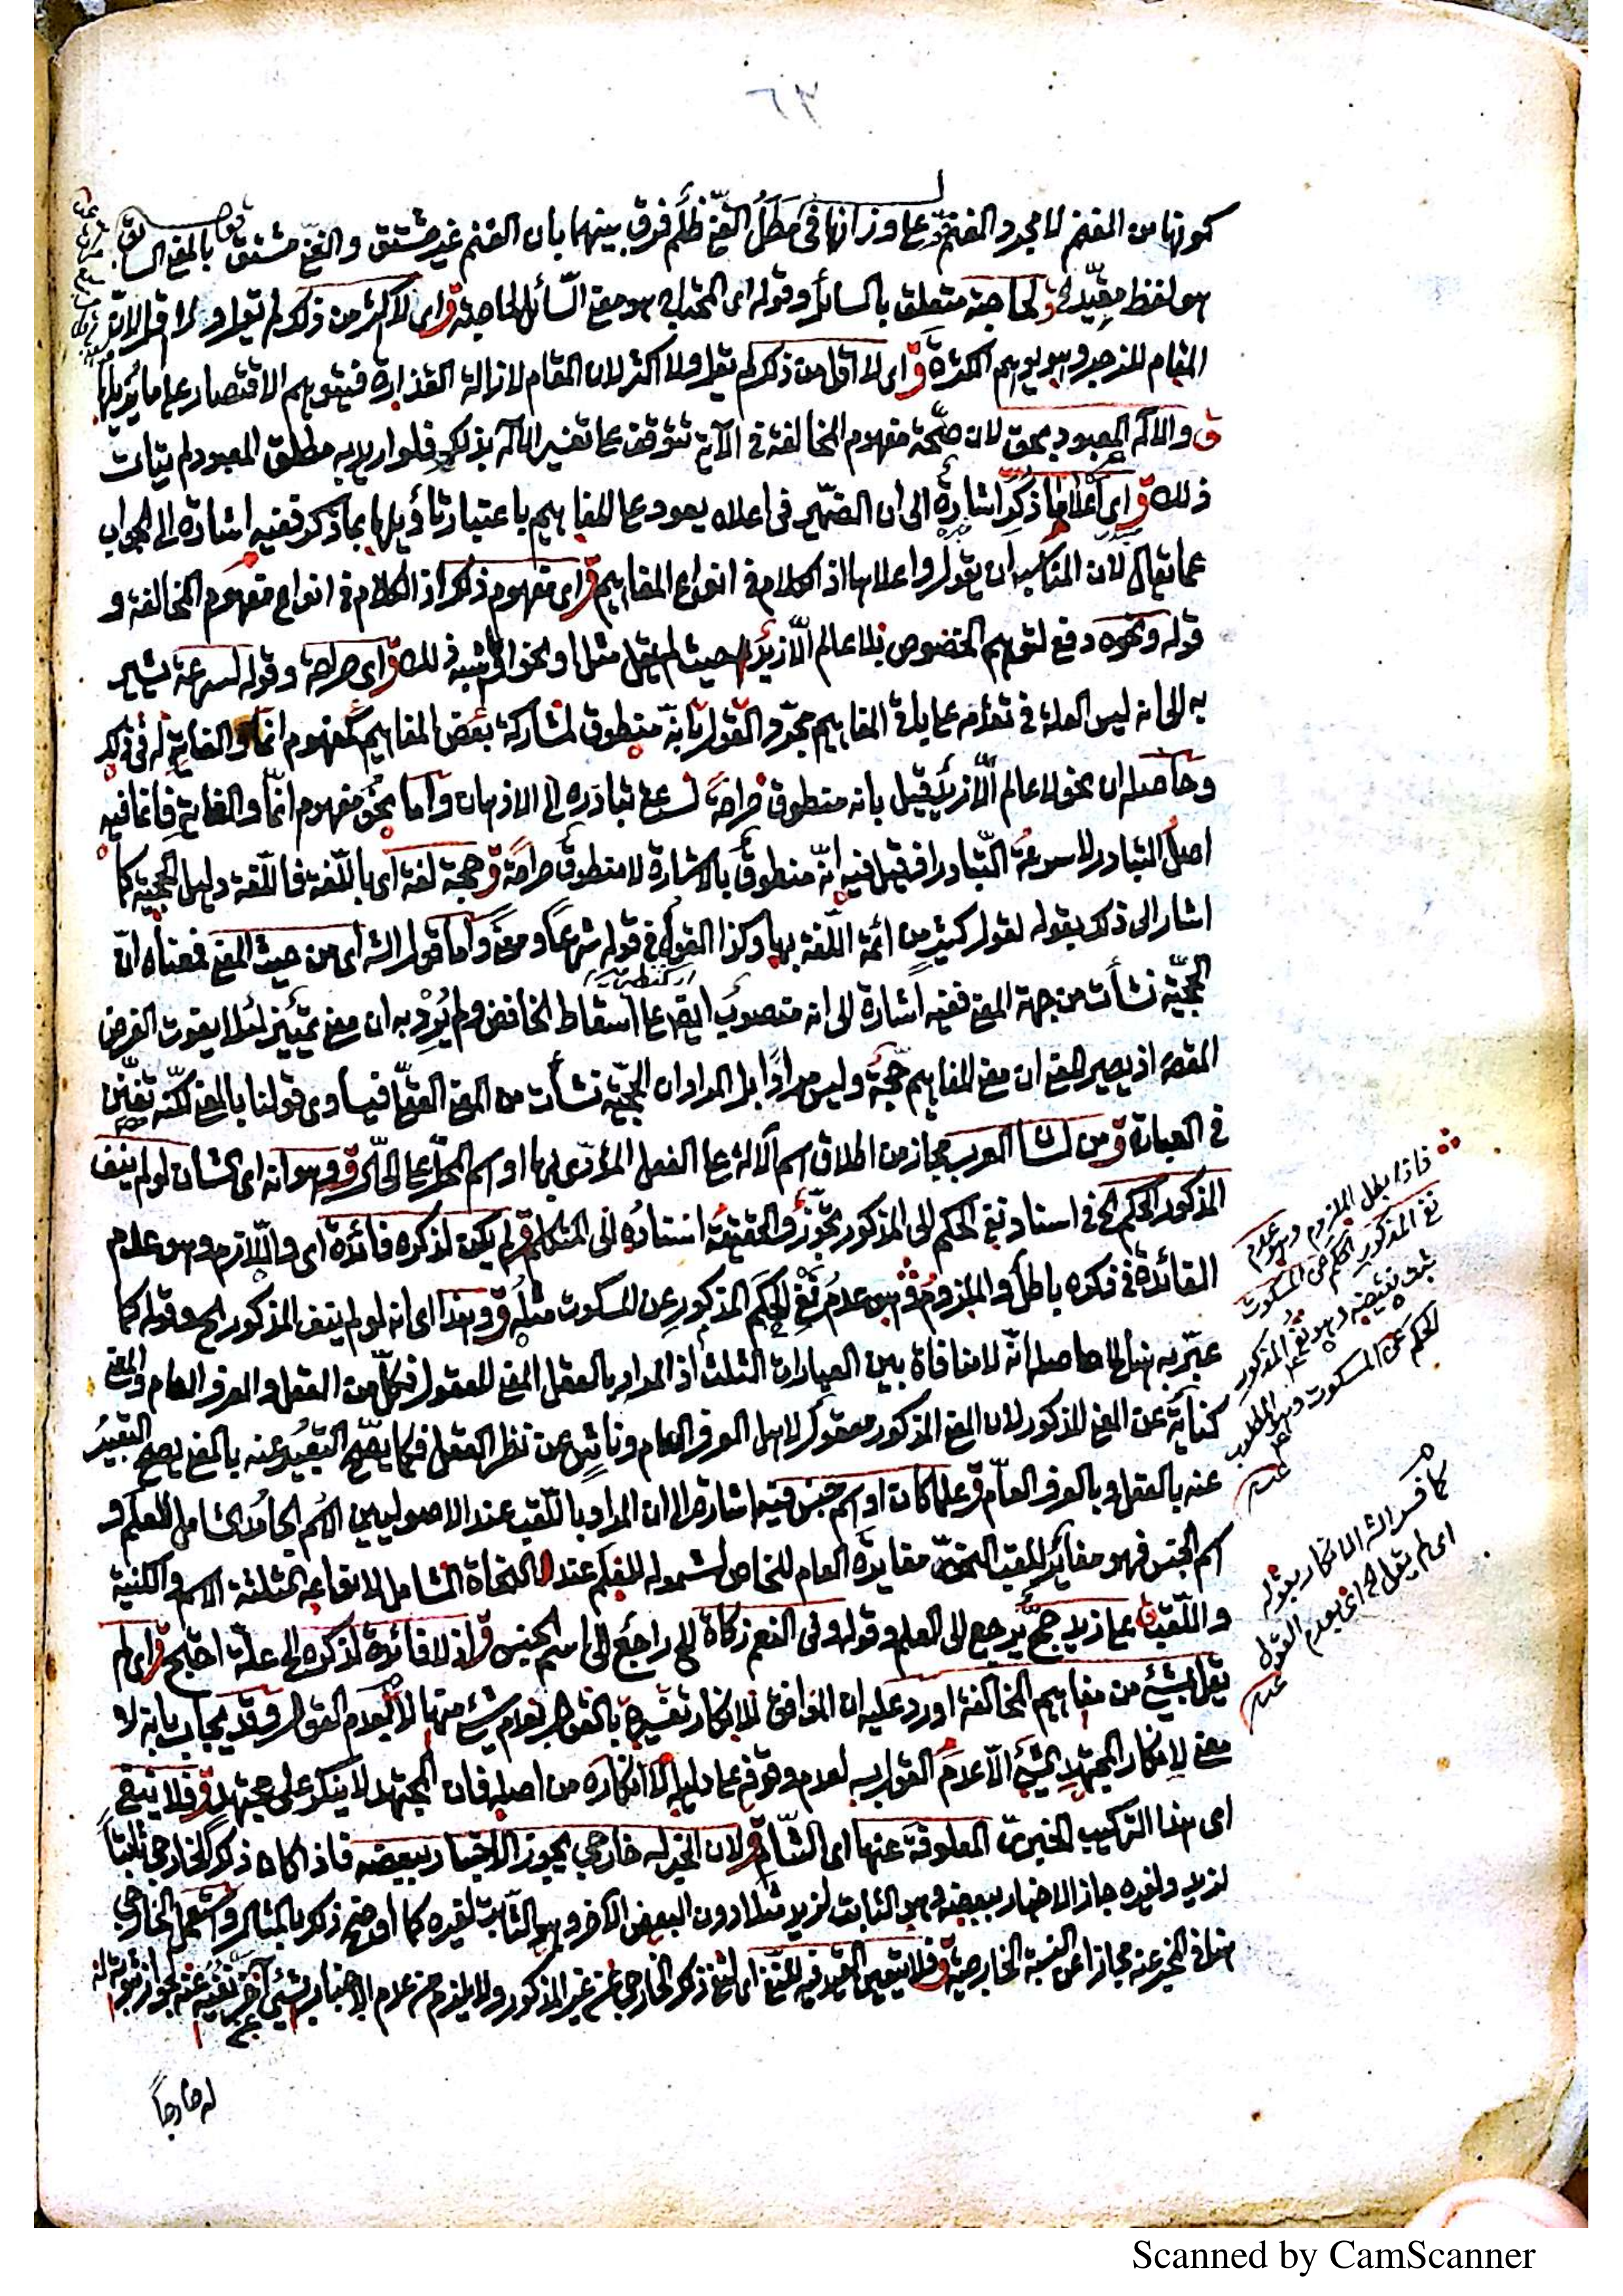 ٦٣
كونها من الغنم لا مجرد الغنم وعلى وزانها في مطل الغني ظلم فرق بينهما بان الغنم غير مشتق والغني مشتق بالمعنى السابق
هو لفظ مقيد ق لحاجة متعلق بالسائل وقوله اى المحتاج هو معنى السائل لحاجة ق اى لا اكثر من ذلك لم يقل ولا اقل لان
المقام للزجر وهو يوهم الكثرة ق اى لا اقل من ذلك لم يقل ولا اكثر لان المقام لازالة القذارة فيتوهم الاقتصار على ما يزيلها
ق والاله المعبود بحق لان صحة مفهوم المخالفة في الآية تتوقف على تفسير الاله بذلك فلو اريد به مطلق المعبود لم يتأت
ذلك ق اى اعلا ما ذكر اشارة الى ان الضمير فى اعلاه يعود على المفاهيم باعتبار تأويلها بما ذكر ففيه اشارة الى الجواب
عما يقال لان المناسب ان يقول واعلاها اذ الكلام في انواع المفاهيم ق اى مفهوم ذلك اذ الكلام في انواع مفهوم المخالفة و
قوله ونحوه دفع لتوهم الخصوص بلا عالم الا زيد حيث لم يقل مثلا ونحو ق ذلك ق اى صراحة وقوله لسرعة يشير
به الى انه ليس العلة في تقدمه على باقى المفاهيم مجرد القول بانه منطوق لمشاركة بعض المفاهيم كمفهوم انما والغاية له فى ذلك
وحاصله ان نحو لا عالم الا زيد قيل بانه منطوق صراحة لسرعة تبادره الى الاذهان واما نحو مفهوم انما والغاية فانما فيه
اصل التبادر لا سرعة التبادر فقيل فيه انه منطوق بالاشارة لا منطوق صراحة ق حجة لغة اى باللغة فاللغة دليل الحجية كما
اشار الى ذلك بقوله لقول كثير من ائمة اللغة بها وكذا القول في قوله شرعا ومعنى واما قول الشه اى من حيث المعنى فمعناه ان
الحجية نشأت من جهة المعنى ففيه اشارة الى انه منصوب ايضا على اسقاط الخافض ولم يرد به ان معنى تمييز لئلا يفوت الغرض
المقصد اذ يصير المعنى ان معنى المفاهيم حجة وليس مرادا بل المراد ان الحجية نشأت من المعنى العقلى فيساوى قولنا بالمعنى لكنه تفنن
في العبارة ق من لسان العرب مجاز من اطلاق اسم الآلة على الفعل المؤدى بها او اسم المحل على الحال ق وهو انه اى الشان لو لم ينف
المذكور الحكم الخ في اسناد نفى الحكم الى المذكور تجوز والحقيقة اسناده الى المتكلم ق لم يكن لذكره فائدة اى واللازم وهو عدم
الفائدة في ذكره باطل والملزوم وهو عدم نفى الحكم المذكور عن المسكوت مثله ق وهذا اى انه لو لم ينف المذكور الخ وقوله كما
عبر به هنا الخ حاصله انه لا منافاة بين العبارات الثلث اذ المراد بالعقل المعنى المعقول فكل من العقل والعرف العام والمعنى
كناية عن المعنى المذكور لان المعنى المذكور معقول لاهل العرف العام وناشئ عن نظر العقل فكما يصح التعبير عنه بالمعنى يصح التعبير
عنه بالعقل وبالعرف العام ق علما كان او اسم جنس فيه اشارة الى ان المراد باللقب عند الاصوليين الاسم الجامد الشامل للعلم و
اسم الجنس فهو مغاير للقب النحوى مغايرة العام للخاص لشموله للعلم عند النحاة الشامل لانواعه الثلثة الاسم والكنية
واللقب ق على زيد حج يرجع الى العلم وقوله وفى النعم زكاة الخ راجع الى اسم الجنس ق اذ لا فائدة لذكره الى علة احتج ق اى لم
يقل بشئ من مفاهيم المخالفة اورد عليه ان الموافق للانكار تفسيره بالقول بعدم شئ منها لا بعدم القول وقد يجاب بانه لا
معنى لانكار المجتهد الشئ الا عدم القول به لعدم وقوفه على دليله لا انكاره من اصله فان المجتهد لا ينكر على مجتهد ق فلا ينبغى
اى هذا التركيب الخبرى المعلوفة عنها اى الشام ق لان الخبر له خارجى يجوز الاخبار ببعضه فاذا كان ذكر الخارجى ثابتا
لزيد ولغيره جاز الاخبار ببعضه وهو الثابت لزيد مثلا دون البعض الآخر وهو الثابت لغيره كما اوضح ذلك بالمثال واستعمل الخارجى
هنا في المخبر عنه مجازا عن النسبة الخارجية ق فلا يتعين القيد فيه للنفى اى لنفى ذكر الخارجى عن غير المذكور ولا يلزم من عدم الاخبار بشئ آخر نفيه عنه لجواز ثبوته له
له خارجا
فاذا بطل الملزوم وهو عدم
نفى المذكور الحكم عن المسكوت
ثبت نقيضه وهو نفى المذكور
الحكم عن المسكوت وهو المطلوب
كما فسر الشه الانكار بقوله
اى لم يقل الخ اى بعدم القول